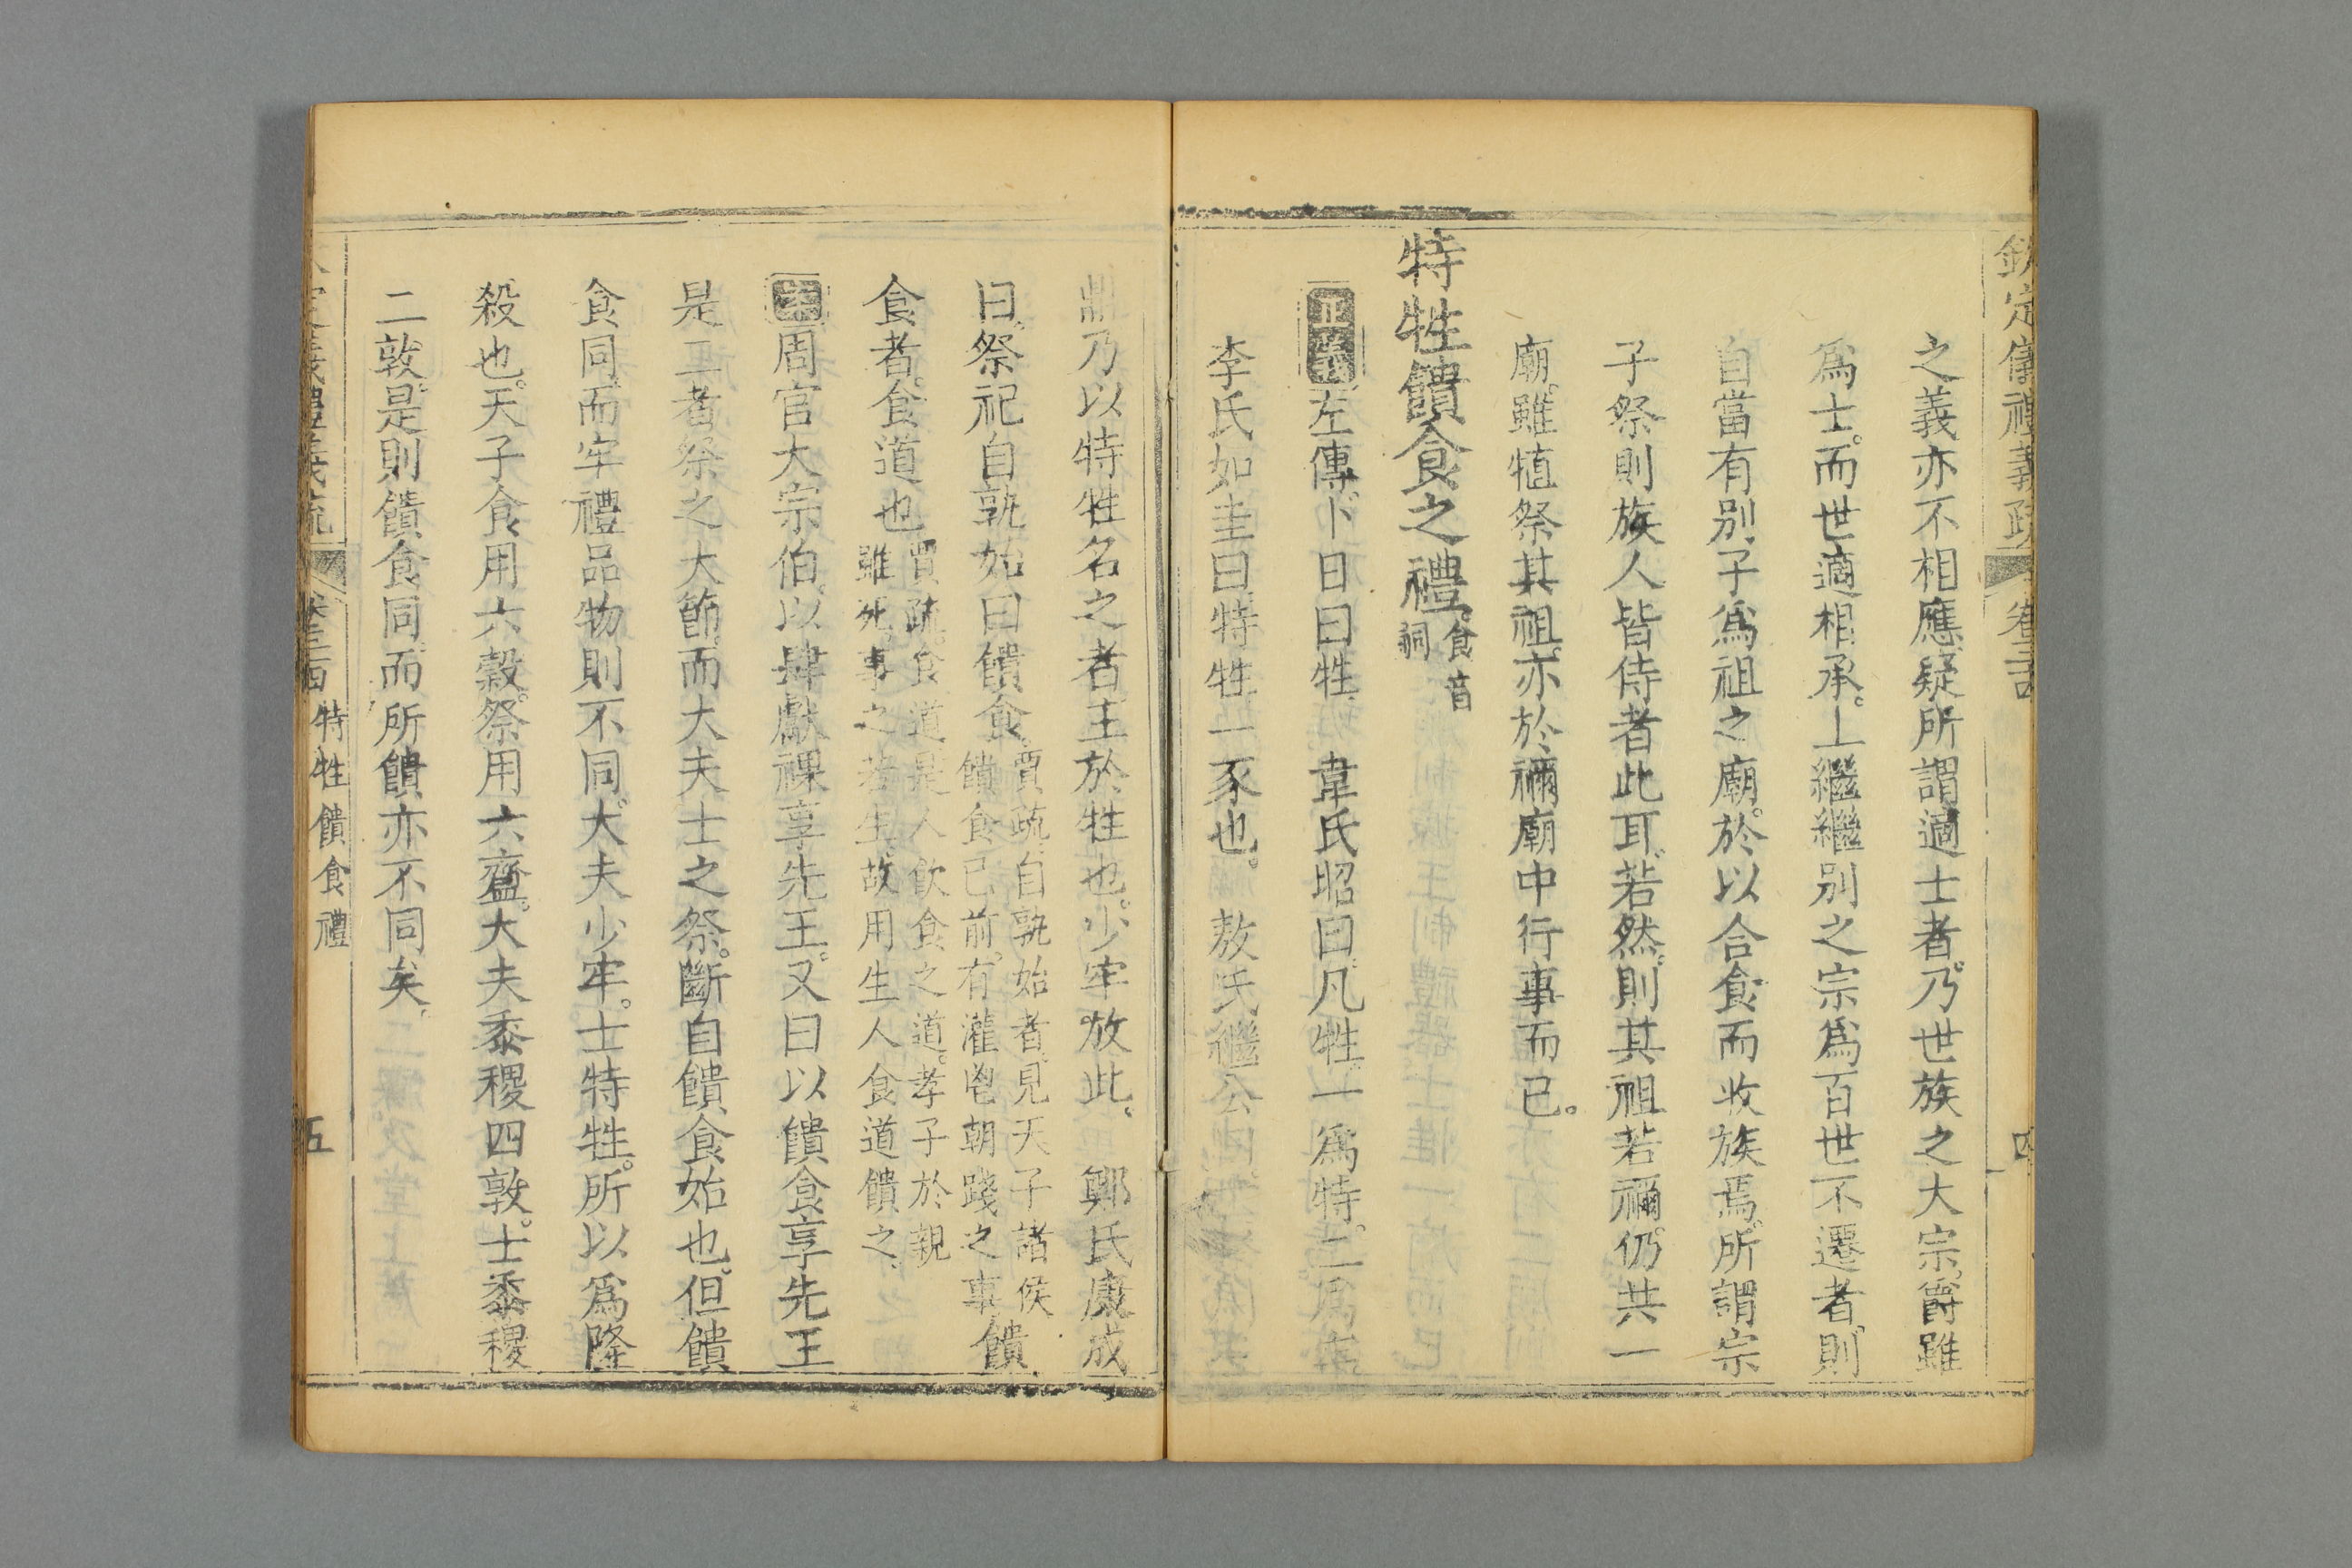 欽定儀禮義疏 卷三
四
之義亦不相應疑所謂適士者乃世族之大宗爵雖
爲士而世適相承上繼繼别之宗爲百世不遷者則
自當有别子爲祖之廟於以合食而收族焉所謂宗
子祭則族人皆侍者此耳若然則其祖若禰仍共一
廟雖犆祭其祖亦於禰廟中行事而已
特牲饋食之禮 食音
祠
正義 左傳卜日曰牲 韋氏昭曰凡牲一爲特二爲
李氏如圭曰特牲一豕也 敖氏繼公曰
鼎乃以特牲名之者主於牲也少牢放此 鄭氏康成
曰祭祀自孰始曰饋食 賈疏自孰始者見天子諸侯
饋食已前有灌鬯朝踐之事 饋
食者食道也 賈疏食道是人飲食之道孝子於親
雖死事之若生故用生人食道饋之
周官大宗伯以肆獻祼享先王又曰以饋食享先王
是二者祭之大節而大夫士之祭斷自饋食始也但饋
食同而牢禮品物則不同大夫少牢士特牲所以爲隆
殺也天子食用六穀祭用六齍大夫黍稷四敦士黍稷
二敦是則饋食同而所饋亦不同矣
特牲饋食禮
五